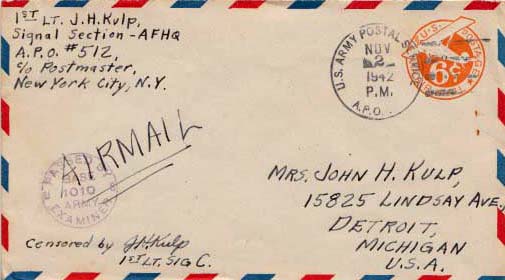 1ST LT. J.H. Kulp,
Signal Section - AFHQ
A.P.O. #512,
c/o Postmaster,
New York City, N.Y.
U.S. ARMY POSTAL SERVICE
NOV
2
1942
P.M.
A.P.O.
U.S. POSTAGE
6¢
AIRMAIL
PASSED BY
BASE
1010
ARMY
EXAMINER
MRS. JOHN H. KULP,
15825 LINDSAY AVE,
DETROIT,
MICHIGAN
U.S.A.
Censored by J.H.Kulp
1ST LT. SIG C.